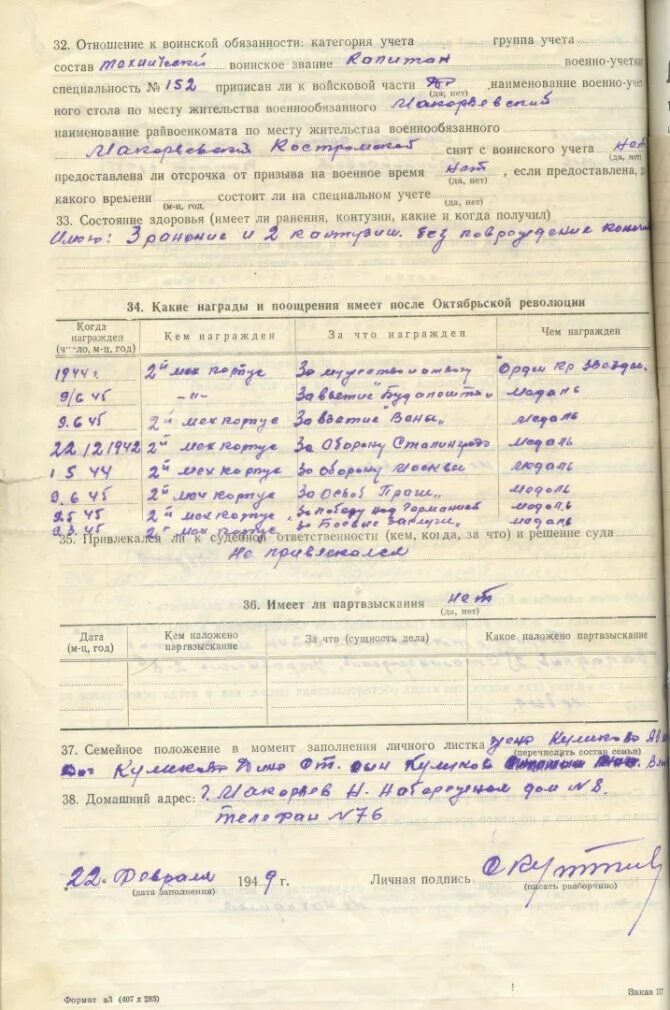 32. Отношение к воинской обязанности: категория учета группа учета
состав технический воинское звание Капитан военно-учетная
специальность № 152 приписан ли к войсковой части (да, нет) ,наименование военно-учет
ного стола по месту жительства военнообязанного Макарьевский
наименование райвоенкомата по месту жительства военнообязанного
Макарьевский Костромской снят с воинского учета нет
(да, нет)
предоставлена ли отсрочка от призыва на военное время нет , если предоставлена,
(да, нет)
какого времени состоит ли на специальном учете
(м-ц, год (да, нет)
33. Состояние здоровья (имеет ли ранения, контузии, какие и когда получил)
Имею: 3 ранение и 2 кантузии. без повреждение
34. Какие награды и поощрения имеет после Октябрьской революции
Когда награжден (число, м-ц, год) Кем награжден За что награжден Чем награжден
1944 г. 2й мех корпус За мужество и отвагу "Орден Кр Звезды"
9/6 45 -"- За взятие "Будапошта" медаль
9.6 45 2й мех корпус За взетие "Вены" медаль
22.12.1942 2й мех корпус За Оборону Сталинграда медаль
1 5 44 2й мех корпус За оборону Москвы медаль
9.6 45 2й мех корпус За Освоб Праги" медоль
9.5 45 2й мех корпус "За победу над Германией медоль
9.3.45 2й мех корпус За Боевые Заслуги" медаль
35. Привлекался ли к судебной ответственности (кем, когда, за что) и решение суда
Не привлекался
36. Имеет ли партвзыскания нет
(да, нет)
Дата (м-ц, год) Кем наложено партвзыскание За что (сущность дела) Какое наложено партвзыскание
37. Семейное положение в момент заполнения личного листка
(перечислить состав семьи)
Куликова От. сын Куликов
38. Домашний адрес: г. Макарьев Н. Набережная дом № 8.
Телефан № 76
22 Февраля 1949 г. Личная подпись
(дата заполнения) (писать разборчиво)
Формат а3 (407 х 283) Заказ